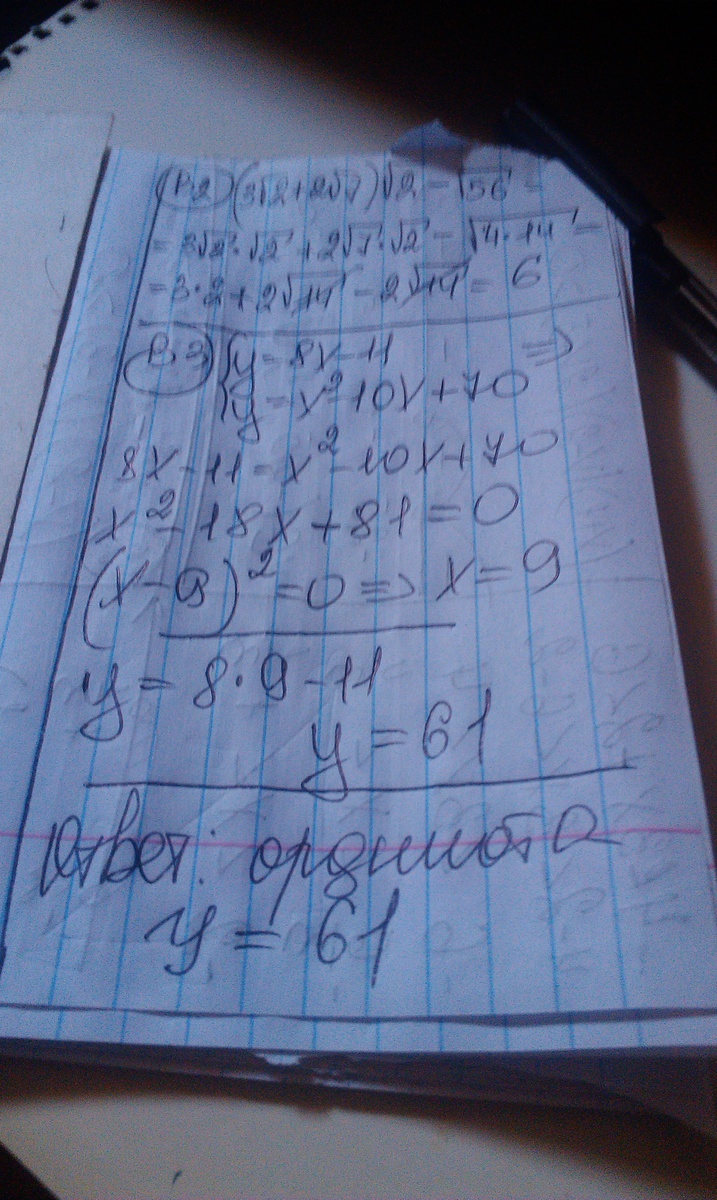 В2 (3√2+2√7)√2 - √56 =
= 3√2·√2 + 2√7·√2 - √4·14 =
= 3·2 + 2√14 - 2√14 = 6
В3 {y = 8x - 11 ⇒
{y = x² - 10x + 70
8x - 11 = x² - 10x + 70
x² - 18x + 81 = 0
(x - 9)² = 0 ⇒ x = 9
y = 8·9 - 11
y = 61
Ответ: ордината
y = 61